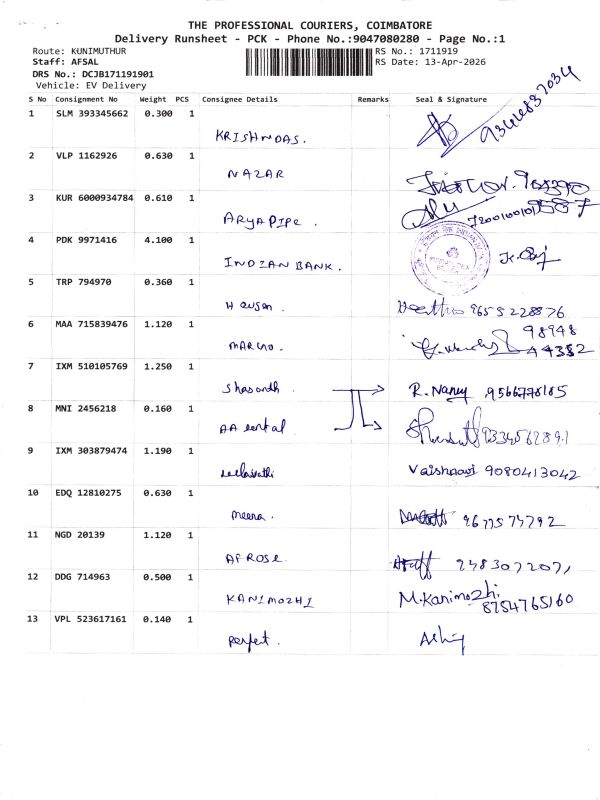 THE PROFESSIONAL COURIERS, COIMBATORE
Delivery Runsheet - PCK - Phone No.:9047080280 - Page No.:1
Route: KUNIMUTHUR RS No.: 1711919
Staff: AFSAL RS Date: 13-Apr-2026
DRS No.: DCJB171191901
Vehicle: EV Delivery
S No Consignment No Weight PCS Consignee Details Remarks Seal & Signature
1 SLM 393345662 0.300 1
KRISHNDAS.
2 VLP 1162926 0.630 1
NAZAR
3 KUR 6000934784 0.610 1
ARYA PIPE.
4 PDK 9971416 4.100 1
INDIAN BANK.
5 TRP 794970 0.360 1
9655228876
6 MAA 715839476 1.120 1
98948
44352
7 IXM 510105769 1.250 1
R. Nancy 9566778165
8 MNI 2456218 0.160 1
9 IXM 303879474 1.190 1
Vaishnavi 9080413042
10 EDQ 12810275 0.630 1
meena. 9677574792
11 NGD 20139 1.120 1
AFROSE.
12 DDG 714963 0.500 1
KANIMOZHI M.Kanimozhi
8754765160
13 VPL 523617161 0.140 1
perfect.